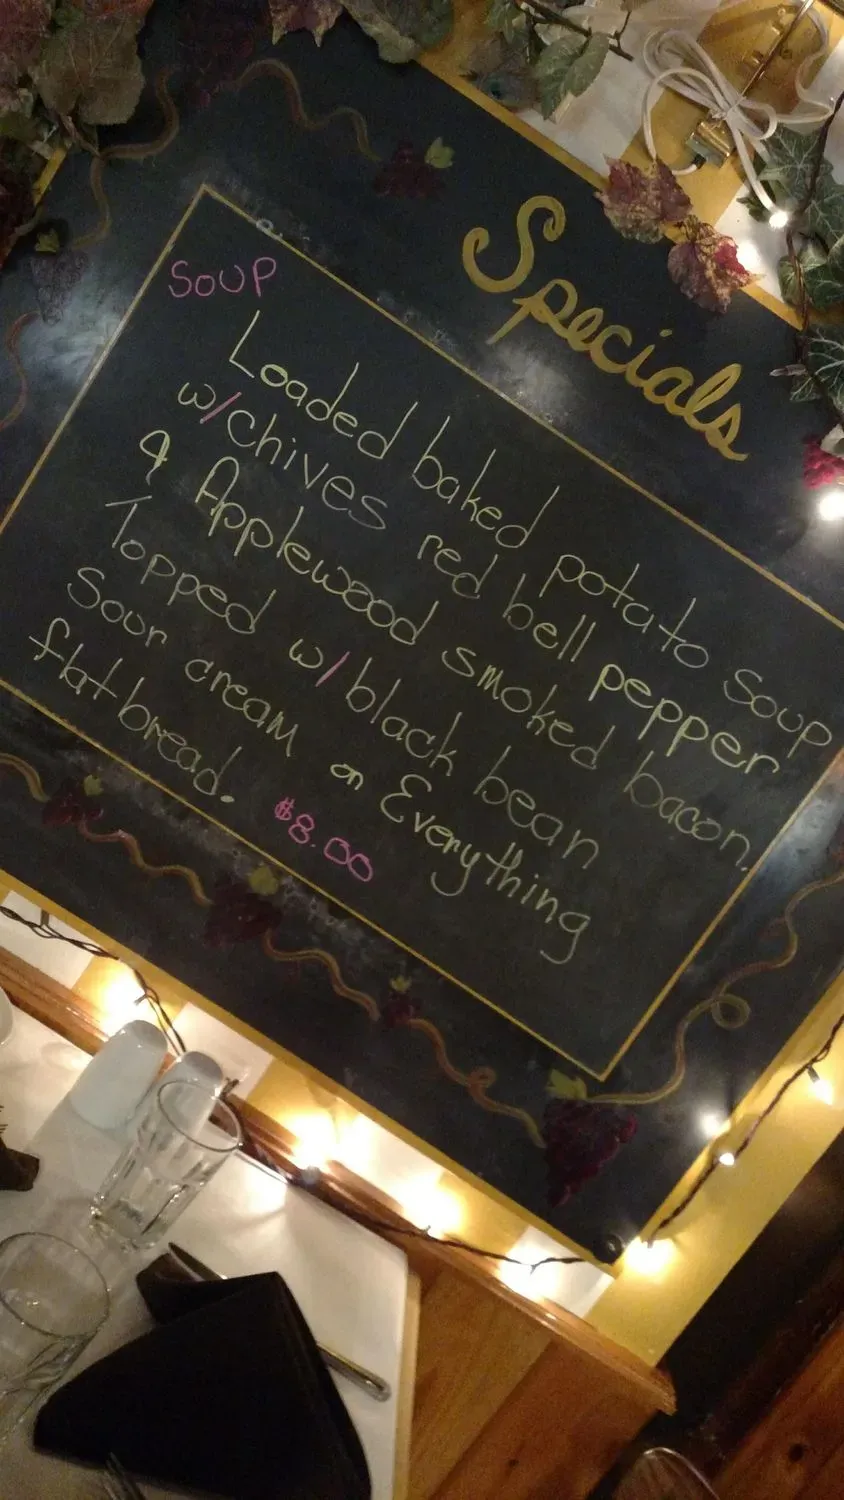 Specials
SOUP
Loaded baked potato soup
w/chives red bell pepper
& Applewood smoked bacon.
Topped w/black bean
Sour cream on Everything
flat bread. $8.00